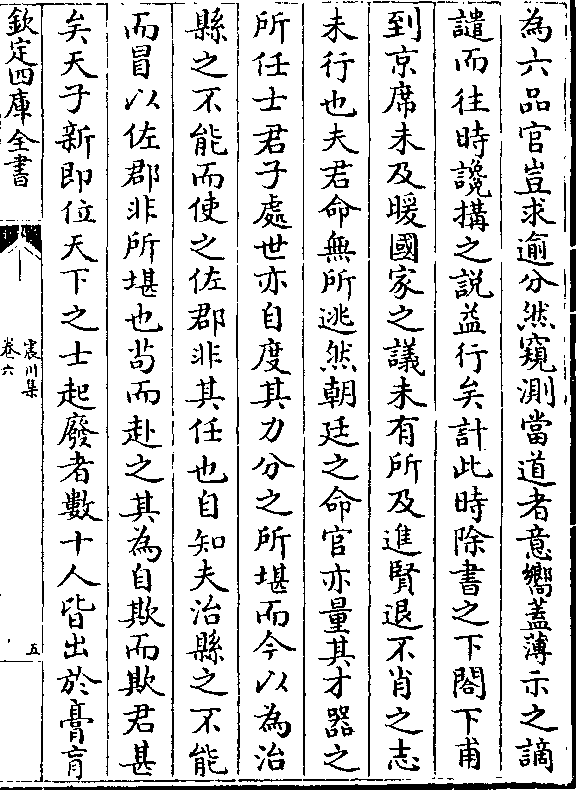 為六品官豈求逾分然窺測當道者意嚮蓋薄示之謫
譴而往時讒搆之説益行矣計此時除書之下閤下甫
到京席未及暖國家之議未有所及進賢退不肖之志
未行也夫君命無所逃然朝廷之命官亦量其才器之
所任士君子處世亦自度其力分之所堪而今以為治
縣之不能而使之佐郡非其任也自知夫治縣之不能
而冒以佐郡非所堪也茍而赴之其為自欺而欺君甚
矣天子新即位天下之士起廢者數十人皆出於膏肓
欽定四庫全書
震川集
卷六
五